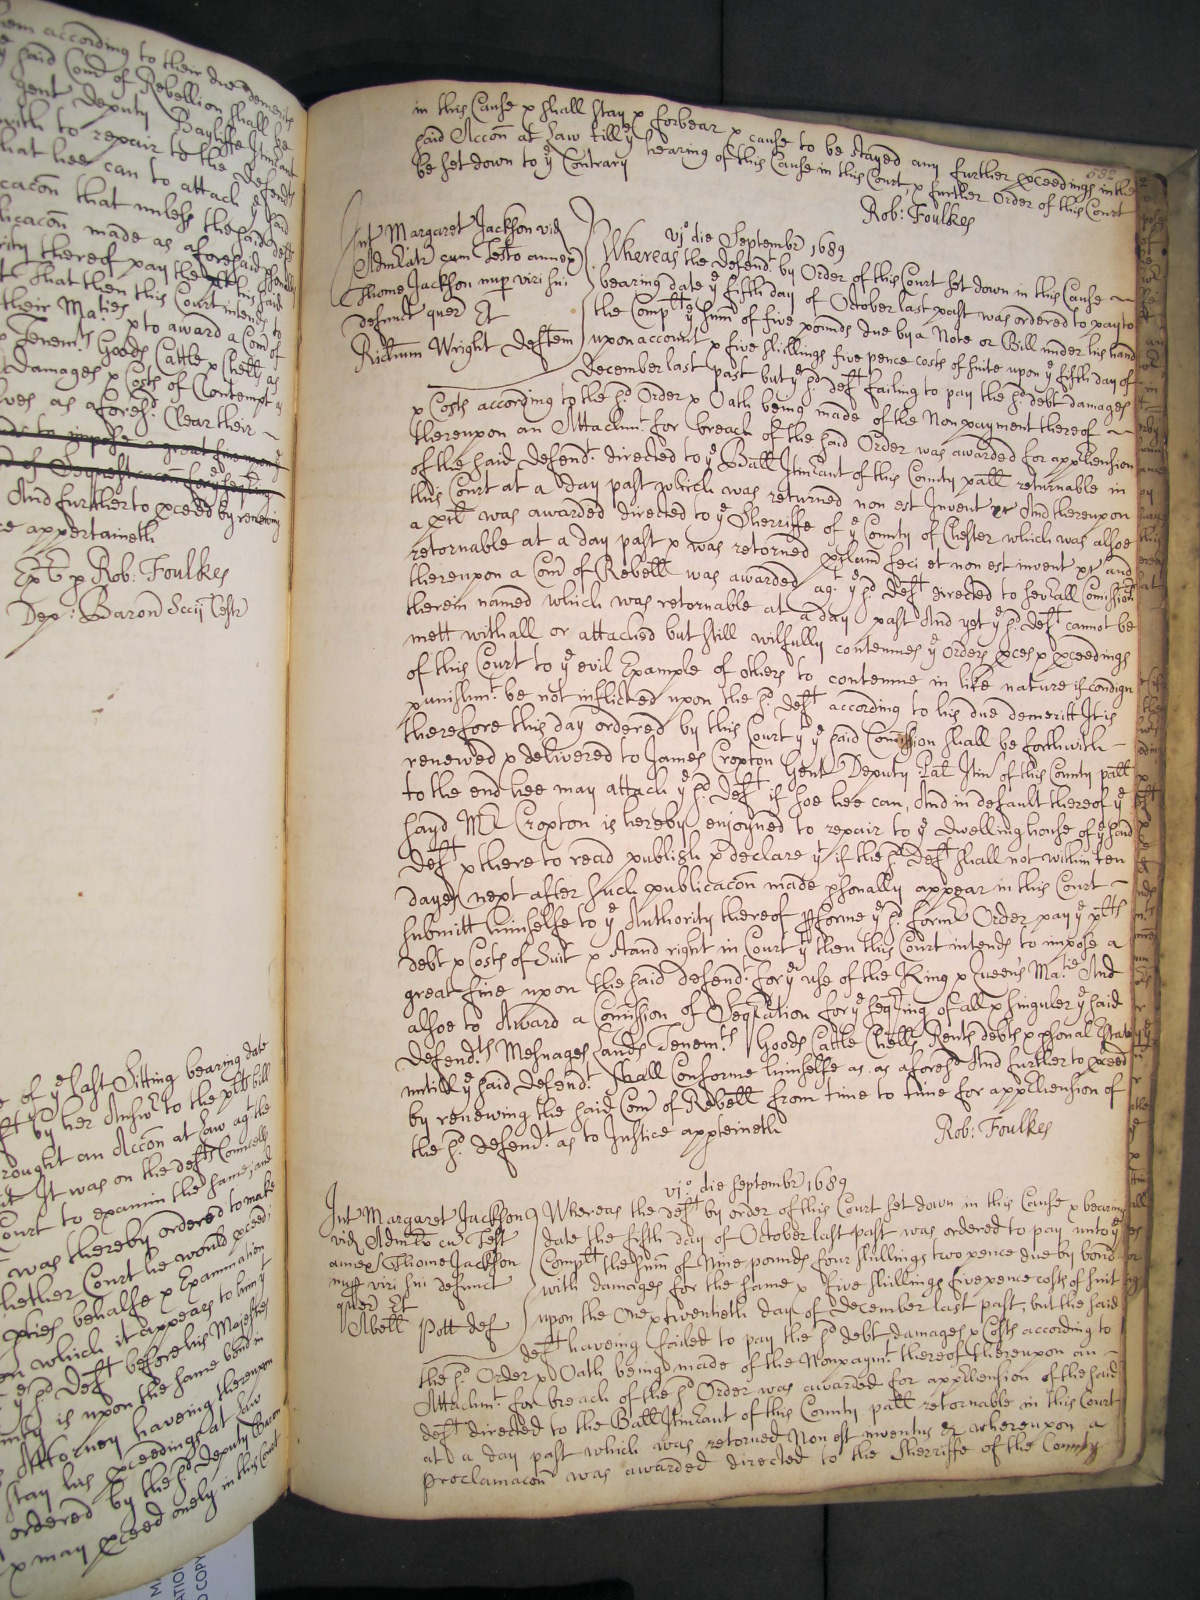 hem according to their due demerits
y^e said Com̃ of Rebellion shall be
gent Deputy Bayliffe Itin̄ant
with to repair to the Defend^ts
hat hee can to attach y^e said
cacōn that unless the said Deft
licacōn made as aforesaid psonally
rity thereof pay the
t That then this Court intends to
their Ma^ties x to award a Com̃ of
Tenem^ts Goods Cattle x Chells as
Damages x Costs of Contempt as
ves as afores^d Clear their
to impose a great fine

And further to pceed by renewing
ce appertaineth
Ex^t p Rob: Foulkes
Dep: Baron Sccij Cestr
e of y^e last Sitting bearing date
ft by her Answ^r to the p^lts bill
rought an Accōn at Law ag^t the
it It was on the defts Councells
Court to examin the same, and
was thereby ordered to make
hether Court he would pceed;
pties behalfe x Examination
en which it appears to him y^t
y^e s^d Deft before his Majesties
is upon the same bond in
Attorney haveing thereupon
stay his pceedings at Law
ordered by the s^d Deputy Baron
x may pceed onely in this Court
582
in this Cause x shall stay x forbear x cause to be stayed any further pceedings in the
said Accōn at Law till y^e hearing of this Cause in this Court x further Order of this Court
be set down to y^e Contrary
Rob: Foulkes
vj° die Septembr 1689
Int^r Margaret Jackson vid
Adm̃latr cum Testo annex
Thome Jackson nup viri sui
defunct quer̃ Et
Richum Wright Deftem
Whereas the defend^t by Order of this Court set down in this Cause
bearing date y^e fifth day of October last past was ordered to pay to
the Comp^lt y^e sum̃ of five pounds due by a Note or Bill under his hand
upon account x five shillings five pence costs of suite upon y^e fifth day of
December last past but y^e s^d deft failing to pay the s^d debt damages
x Costs according to the s^d Order x Oath being made of the Non payment thereof
thereupon an Attachm^t for breach of the said Order was awarded for apphension
of the said Defend^t directed to y^e Ball Itin̄ant of this County pall returnable in
this Court at a day past which was returned non est Invent xr And thereupon
a p̄cl^a was awarded directed to y^e Sherriffe of y^e County of Chester which was alsoe
retornable at a day past x was retorned p̄clam̃ feci et non est invent xr and
thereupon a Com̃ of Rebell was awarded ag^t y^e s^d Deft directed to sev̄all Com̃ission^rs
therein named which was retornable at a day past And yet y^e s^d Deft cannot be
mett withall or attached but still wilfully contemnes y^e Orders pces x pceedings
of this Court to y^e evil Example of others to contemne in like nature if condign
punishm^t be not inflicted upon the s^d Deft according to his due demeritt It is
therefore this day ordered by this Court y^t y^e said Com̃ission shall be forthwith
renewed x delivered to James Croxton Gent Deputy Bal Itin̄ of this County pall
to the end hee may attach y^e s^d Deft if soe hee can, And in default thereof y^e
sayd M^r Croxton is hereby enjoyned to repair to y^e dwelling house of y^e said
Deft x there to read publish x declare y^t if the s^d Deft shall not within ten
dayes next after such publicacōn made psonally appear in this Court
submitt himselfe to y^e Authority thereof pforme y^e s^d form^r Order pay y^e p^lts
debt x Costs of Suit x stand right in Court y^t then this Court intends to impose a
great fine upon the said defend^t for y^e use of the King x Queen's Ma^tie And
alsoe to Award a Com̃ission of Sequacōn for y^e seq^ring of all x singuler y^e said
Defend^ts Messuages Lands Tenem^ts Goods Cattle Chells Rents debts x psonal Estate
untill y^e said Defend^t shall Conforme himselfe as as afores^d And further to pceed
by renewing the said Com̃ of Rebell from time to time for apphension of
the s^d defend^t as to Justice apptaineth
Rob: Foulkes
vj° die septembr 1689
Int^r Margaret Jackson
vid Adm̃ĩx cu Test
annex Thome Jackson
nup viri sui defunct
quer̃ Et
Abell Pott def
Whereas the deft by order of this Court set down in this Cause x bearing
date the fifth day of October last past was ordered to pay unto y^e
Comp^lt the sum̃ of Nine pounds four shillings two pence due by bond
with damages for the same x five shillings five pence costs of suit
upon the One x twentieth day of December last past, but the said
deft haveing failed to pay the s^d debt damages x Costs according to
the s^d Order x Oath being made of the Nonpaym^t thereof thereupon an
Attachm^t for breach of the s^d Order was awarded for apphension of the said
deft directed to the Ball Itin̄ant of this County pall retornable in this Court
at a day past which was retorned Non est inventus &c whereupon a
proclamacōn was awarded directed to the Sherriffe of the County